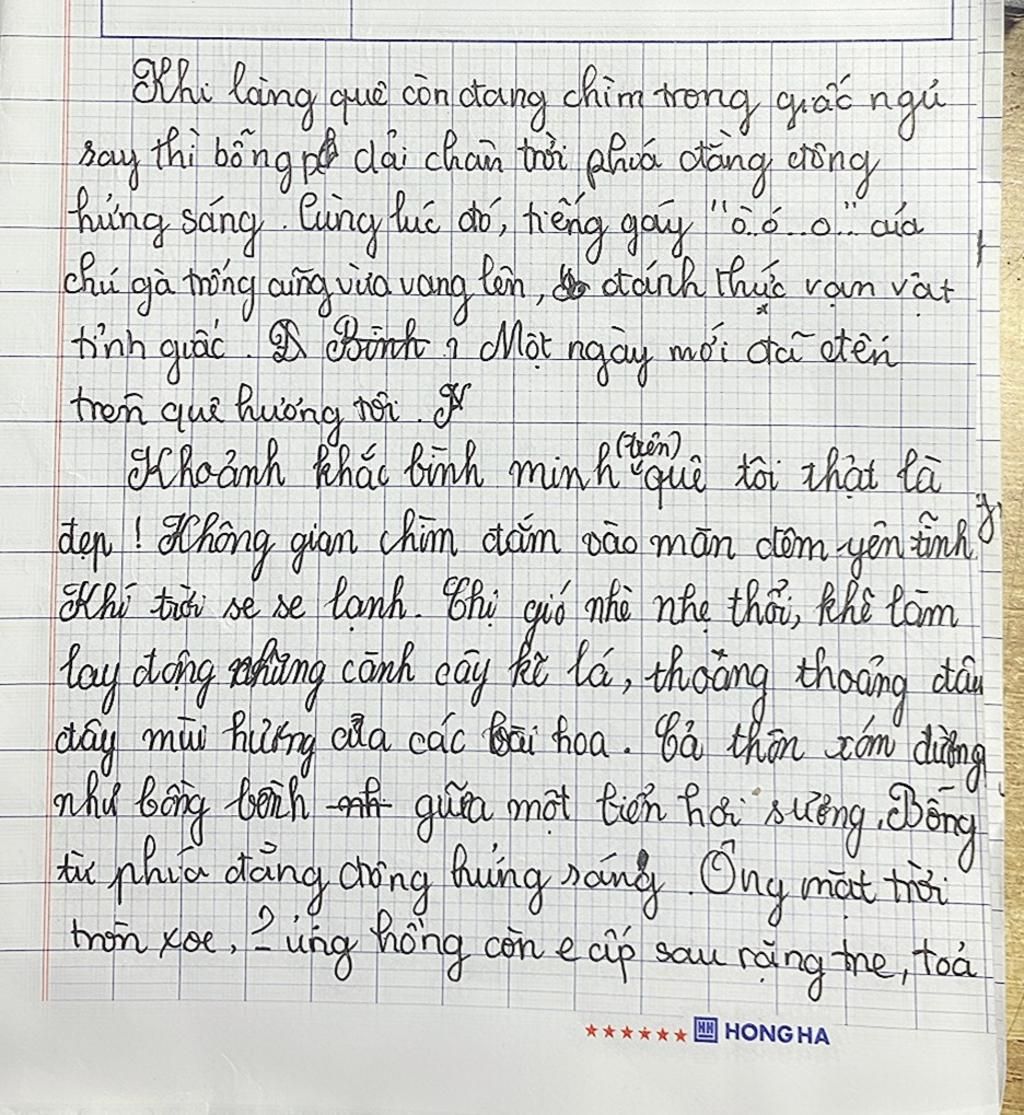 Khi làng quê còn đang chìm trong giấc ngủ
say thì bỗng dải chân trời phía đằng đông
hửng sáng. Cùng lúc đó, tiếng gáy "ò..ó..o.." của
chú gà trống cũng vừa vang lên, đánh thức vạn vật
tỉnh giấc. Bình Một ngày mới đã đến
trên quê hương rồi.
Khoảnh khắc bình minh (trên) quê tôi thật là
đẹp! Không gian chìm đắm vào màn đêm yên tĩnh
Khí trời se se lạnh. Chị gió nhè nhẹ thổi, khẽ làm
lay động những cành cây kẽ lá, thoang thoảng đâu
đây mùi hương của các loài hoa. Cả thôn xóm dường
như bồng bềnh giữa một biển hơi sương. Bỗng
từ phía đằng đông hửng sáng. Ông mặt trời
tròn xoe, ửng hồng còn e ấp sau rặng tre, toả
HH HONG HA